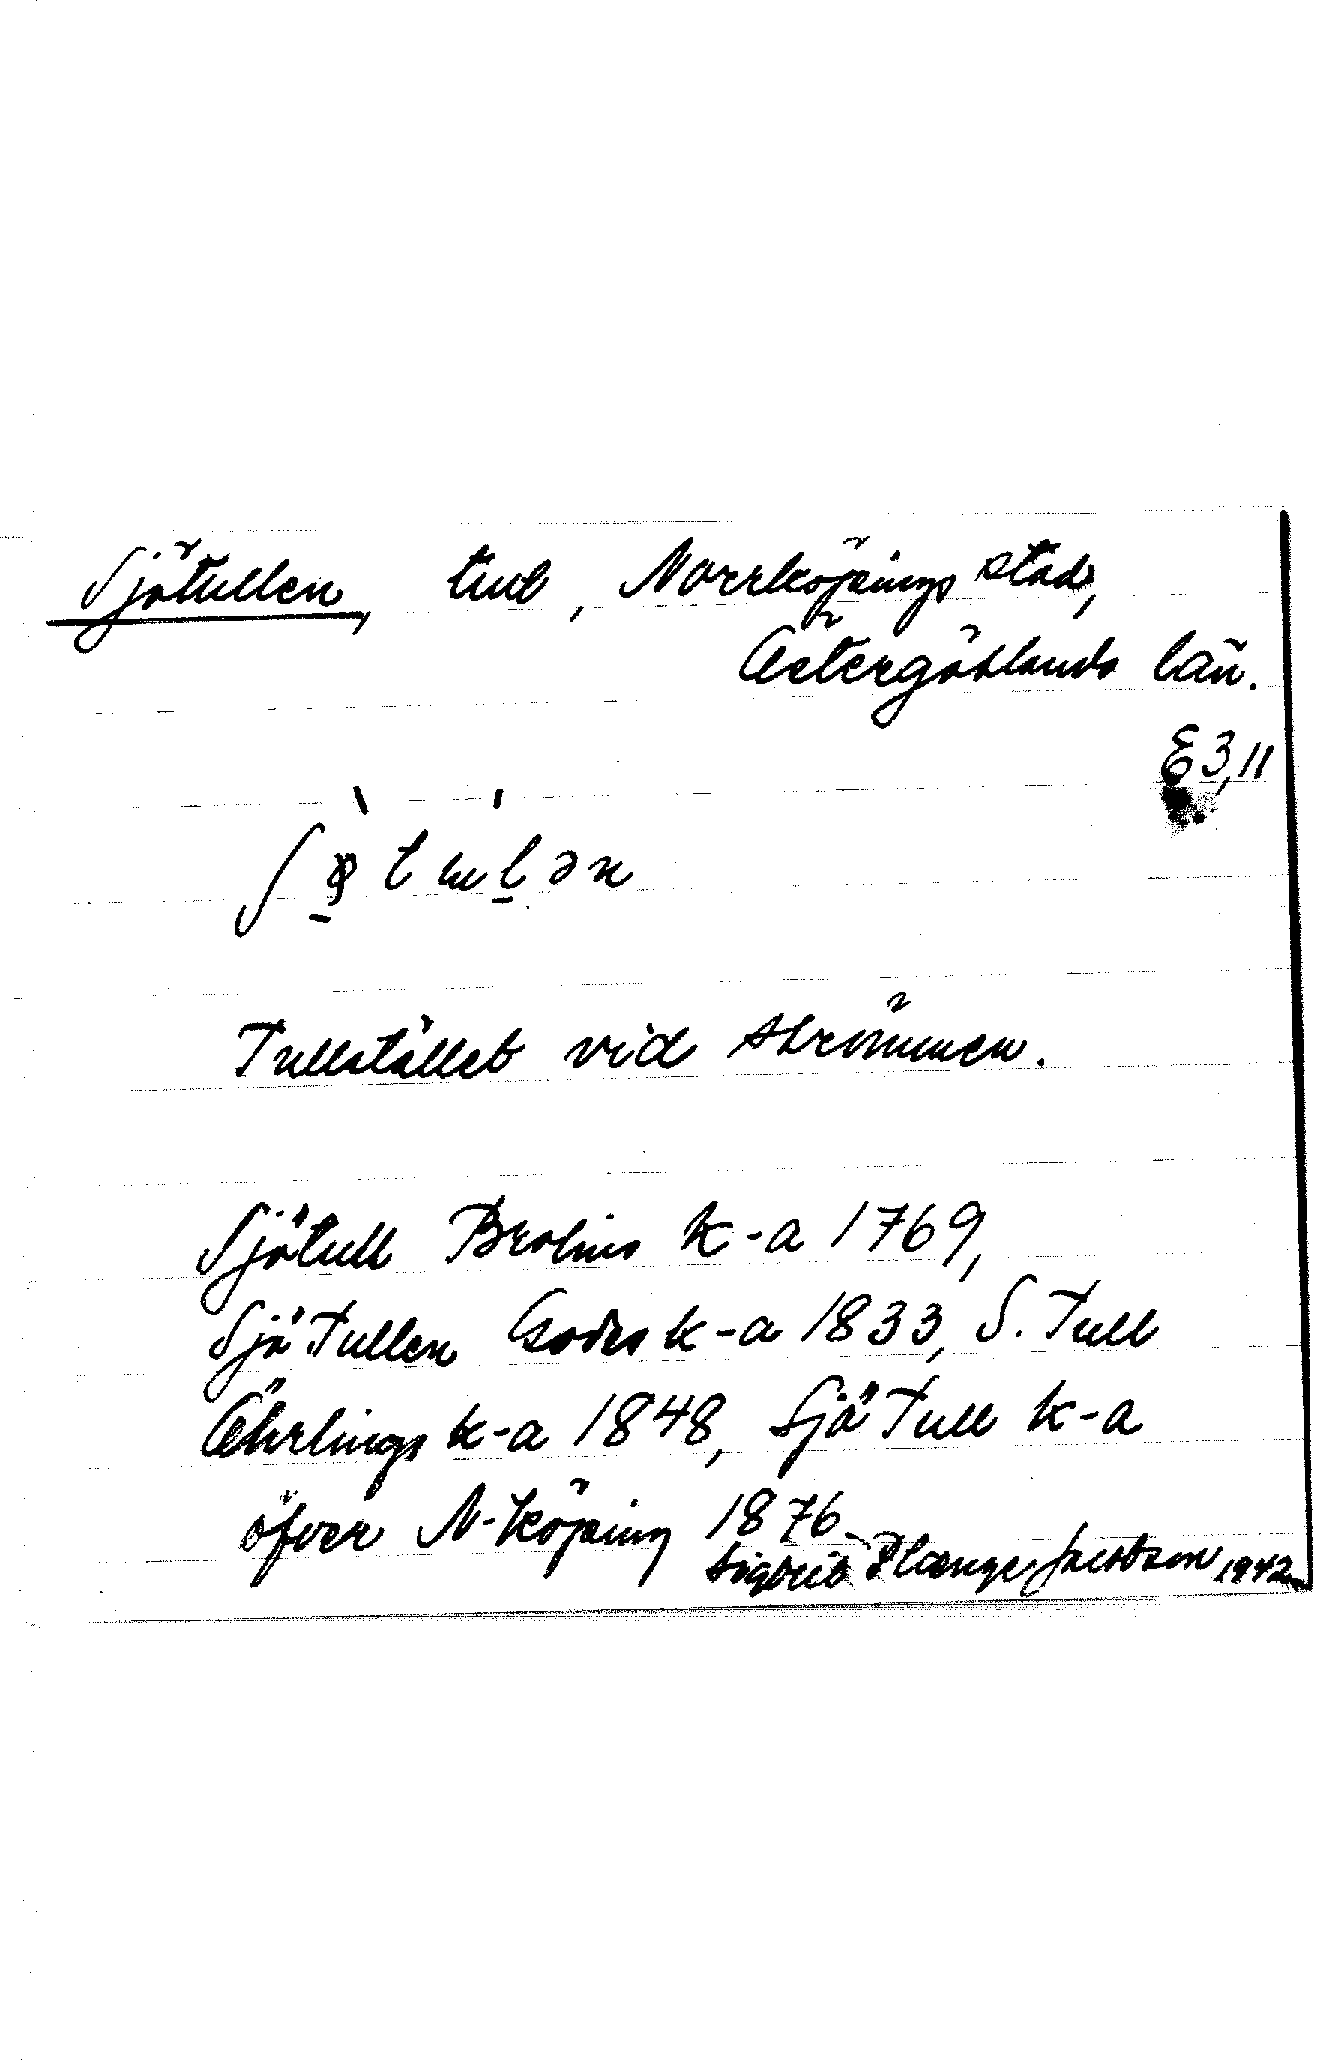 Sjötullen, tull, Norrköpings stad,
Östergötlands län.
E 3,11
Tullstället vid strömmen.
Sjötull Brolins k-a 1769,
Sjö Tullen Godes k-a 1833, S. Tull
Öhrlings k-a 1848, Sjö Tull k-a
öfver N-köping 1876
Sigbrit Plænge Jacobson 1942